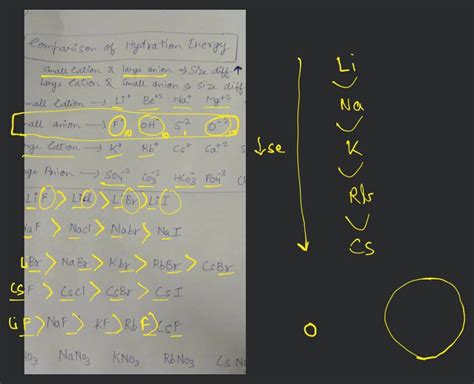 Comparison of Hydration Energy
Small Cation & large anion → Size diff ↑
large Cation & small anion → Size diff
mall Cation → Li⁺ Be⁺² Na⁺ Mg⁺²
mall anion → F⁻ OH⁻ S⁻² O⁻²
rge Cation → K⁺ Rb⁺ Cs⁺ Ca⁺²
ge Anion → SO₄⁻² CO₃⁻² HCO₃⁻ PO₄⁻³
LiF > LiCl > LiBr > LiI
NaF > NaCl > Nabr > NaI
LiBr > NaBr > Kbr > RbBr > CsBr
CsF > CsCl > CsBr > CsI
LiF > NaF > KF > RbF > CsF
NO₃ NaNO₃ KNO₃ RbNO₃ Cs N
Li
Na
K
Rb
Cs
↓se